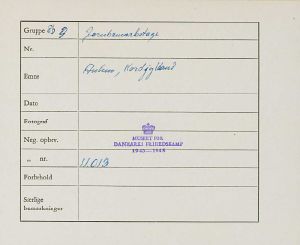 Gruppe
Jernbanesabotage
Nr.
Emne
Nordjylland
Dato
Fotograf
Neg. opbev.
MUSEET FOR
DANMARKS FRIHEDSKAMP
1940—1945
„ nr.
11013
Forbehold
Særlige
bemærkninger